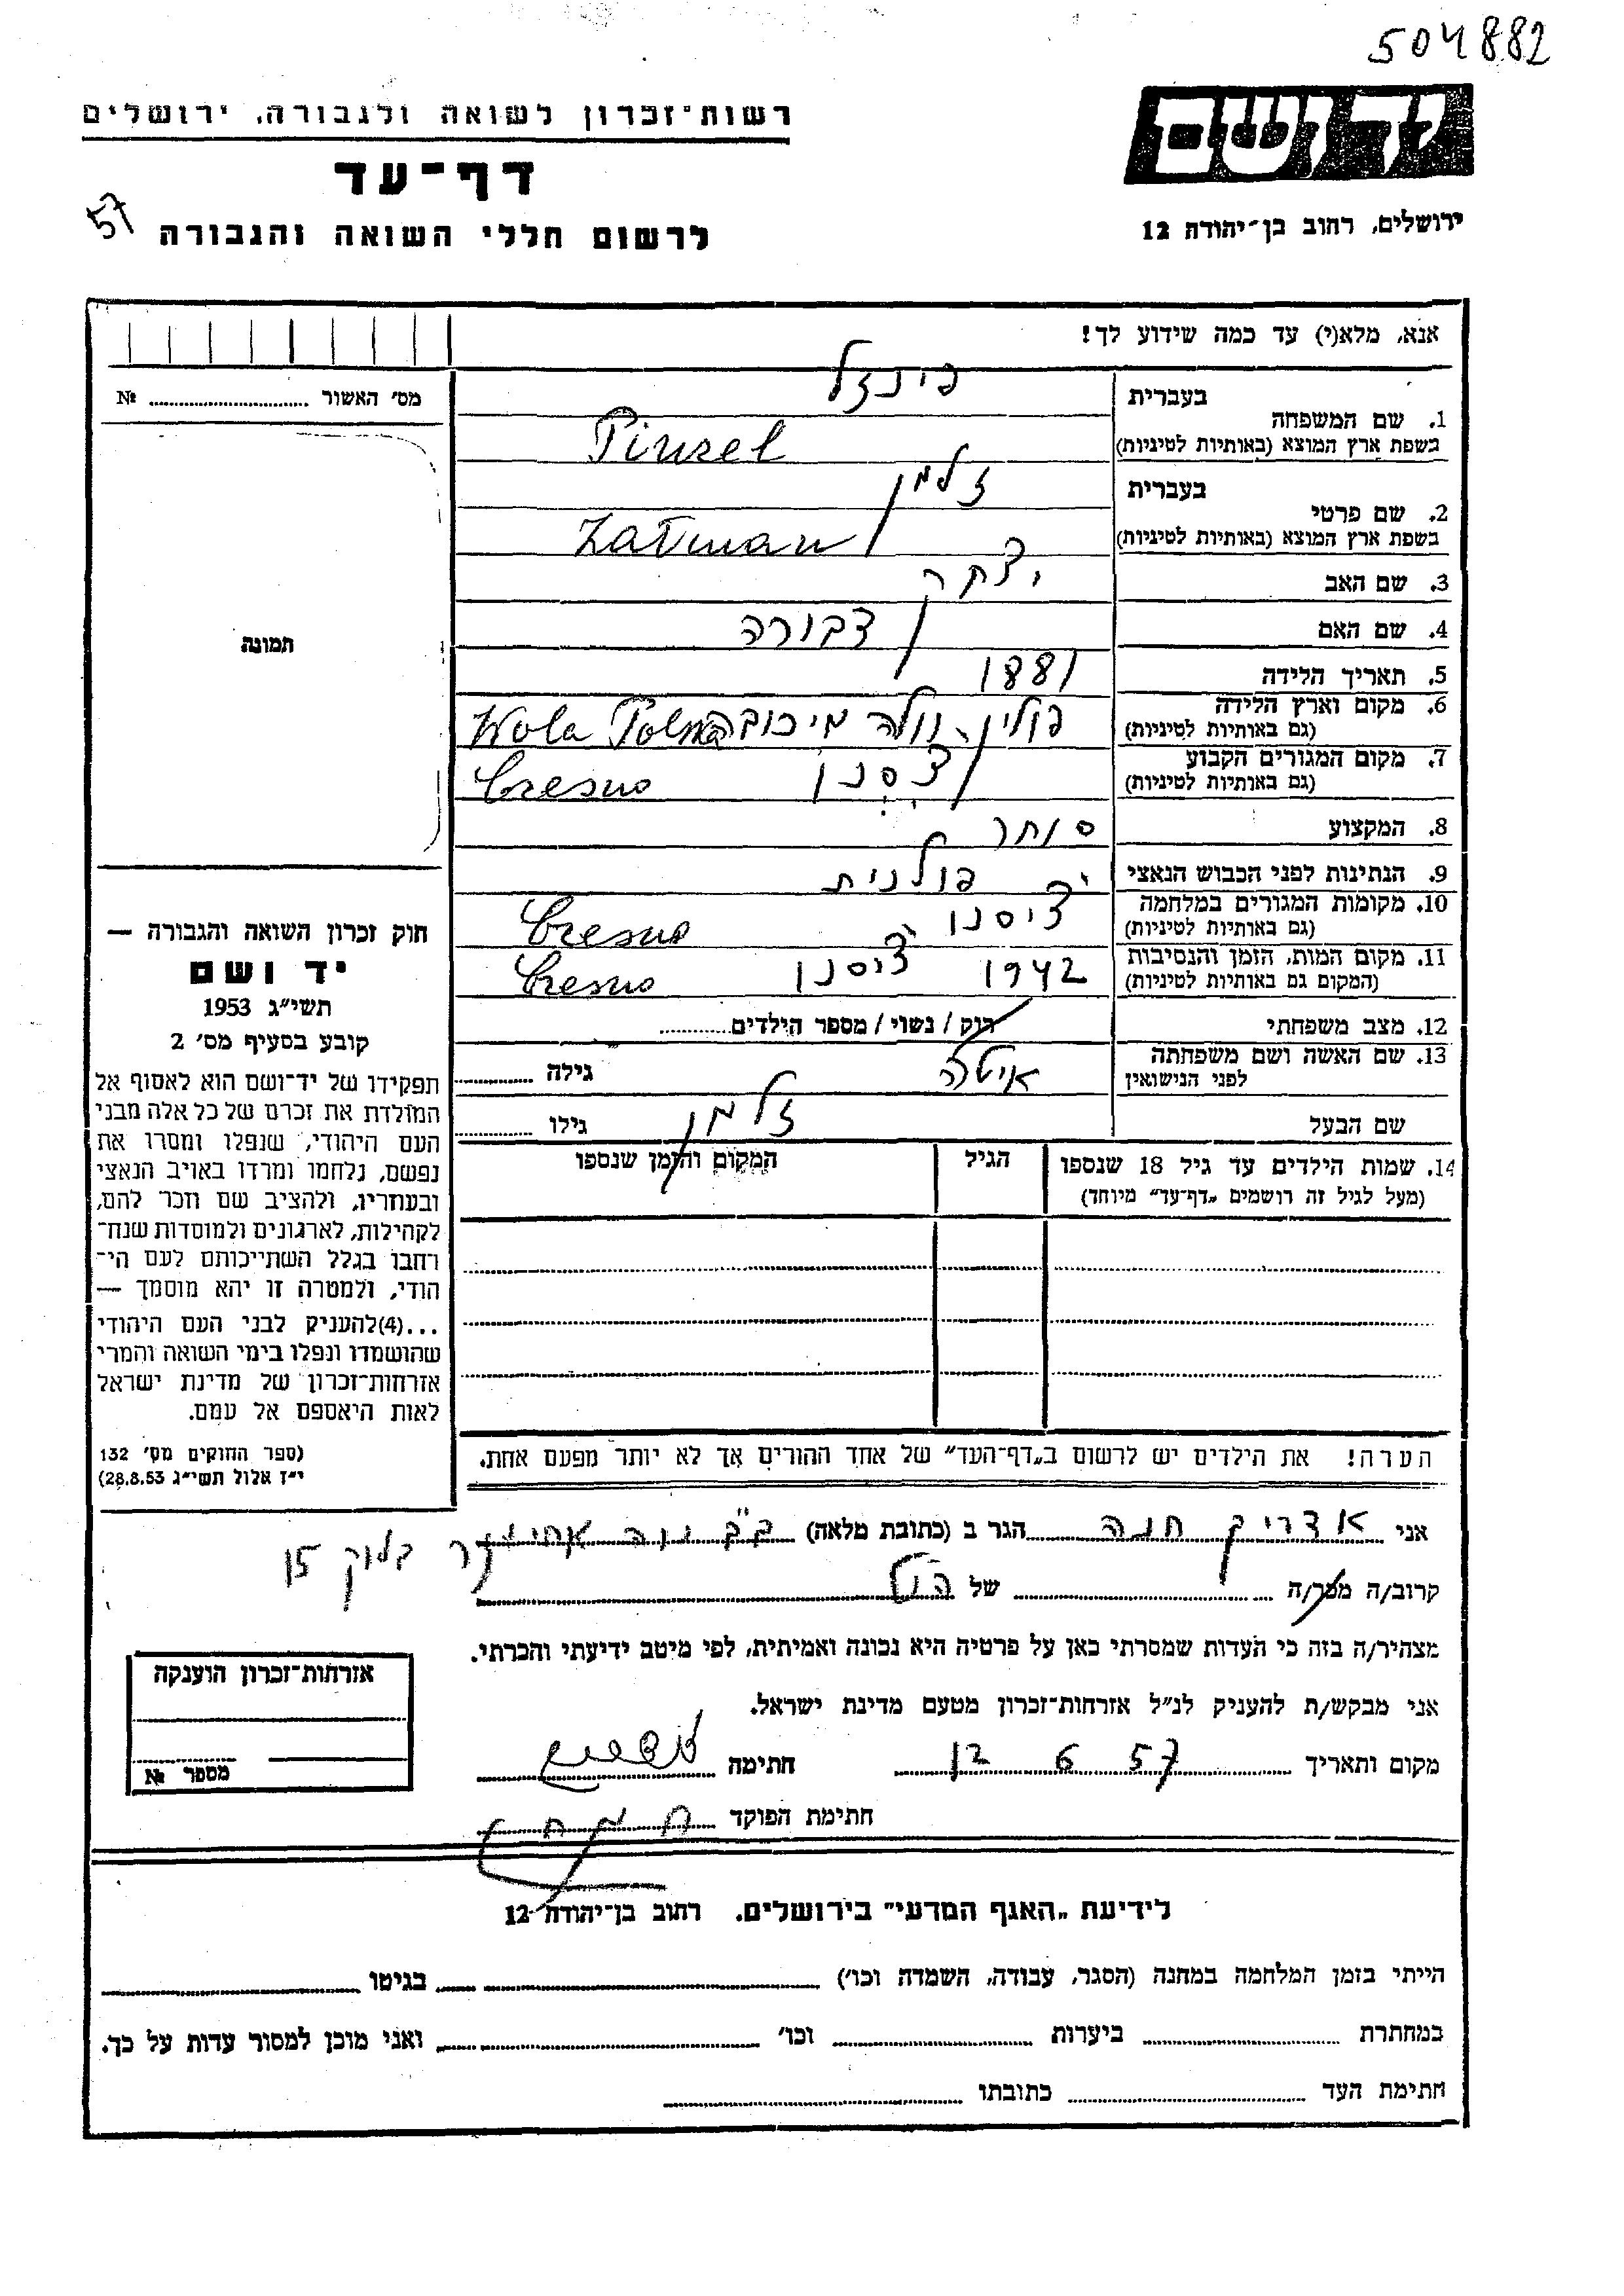 504882
רשות־זכרון לשואה ולגבורה, ירושלים
יד ושם
דף־עד
57
לרשום חללי השואה והגבורה
ירושלים, רחוב בן־יהודה 12
אנא, מלא(י) עד כמה שידוע לך!
מס׳ האשור № 
בעברית פינזל
1. שם המשפחה
בשפת ארץ המוצא (באותיות לטיניות) Pinzel
בעברית זלמן
2. שם פרטי
בשפת ארץ המוצא (באותיות לטיניות) Zalman
3. שם האב
4. שם האם דבורה
5. תאריך הלידה 1881
6. מקום וארץ הלידה פולין, וולה Wola
(גם באותיות לטיניות)
7. מקום המגורים הקבוע
(גם באותיות לטיניות)
8. המקצוע סוחר
9. הנתינות לפני הכבוש הנאצי פולנית
10. מקומות המגורים במלחמה ציסנו
(גם באותיות לטיניות)
11. מקום המות, הזמן והנסיבות 1942 ציסנו
(המקום גם באותיות לטיניות)
12. מצב משפחתי רוק / נשוי / מספר הילדים
13. שם האשה ושם משפחתה
לפני הנישואין איטה גילה
שם הבעל זלמן גילו
14. שמות הילדים עד גיל 18 שנספו הגיל המקום והזמן שנספו
(מעל לגיל זה רושמים „דף־עד״ מיוחד)
הערה! את הילדים יש לרשום ב„דף־העד״ של אחד ההורים אך לא יותר מפעם אחת.
תמונה
חוק זכרון השואה והגבורה —
יד ושם
תשי״ג 1953
קובע בסעיף מס׳ 2
תפקידו של יד־ושם הוא לאסוף אל
המולדת את זכרם של כל אלה מבני
העם היהודי, שנפלו ומסרו את
נפשם, נלחמו ומרדו באויב הנאצי
ובעוזריו, ולהציב שם וזכר להם,
לקהילות, לארגונים ולמוסדות שנח־
רבו בגלל השתייכותם לעם הי־
הודי, ולמטרה זו יהא מוסמך —
...(4) להעניק לבני העם היהודי
שהושמדו ונפלו בימי השואה והמרי
אזרחות־זכרון של מדינת ישראל
לאות היאספם אל עמם.
(ספר החוקים מס׳ 132
י״ז אלול תשי״ג 28.8.53)
אני חנה הגר ב (כתובת מלאה) נוה בלוק 15
קרוב/ה מכר/ה של
מצהיר/ה בזה כי העדות שמסרתי כאן על פרטיה היא נכונה ואמיתית, לפי מיטב ידיעתי והכרתי.
אני מבקש/ת להעניק לנ״ל אזרחות־זכרון מטעם מדינת ישראל.
מקום ותאריך 57 6 12 חתימה
חתימת הפוקד
אזרחות־זכרון הוענקה
מספר №
לידיעת „האגף המדעי״ בירושלים, רחוב בן־יהודה 12
הייתי בזמן המלחמה במחנה (הסגר, עבודה, השמדה וכו׳) בגיטו
במחתרת ביערות וכו׳ ואני מוכן למסור עדות על כך.
חתימת העד כתובתו